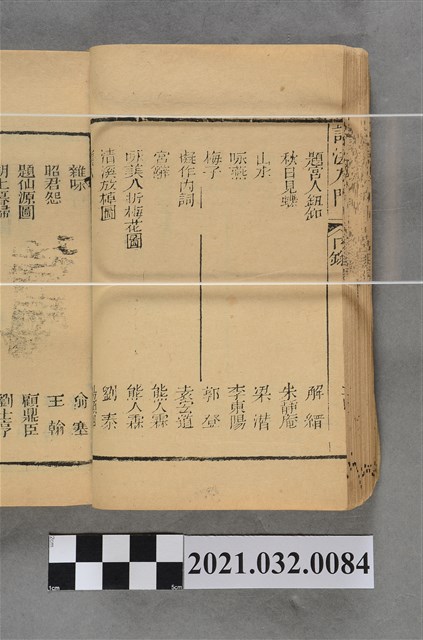 詩法入門
目錄
題宮人紉仰 解縉
秋日見蝶 朱靜庵
山水 梁潛
咏燕 李東陽
梅子 郭登
擬作內詞 袁宏道
宮詞 熊人霖
咏美人折梅花圖 熊人霖
清溪放棹圖 劉泰
雜咏
昭君怨 王翰
題仙源圖 顧鼎臣
劉士亨
2021.032.0084
1cm
5cm